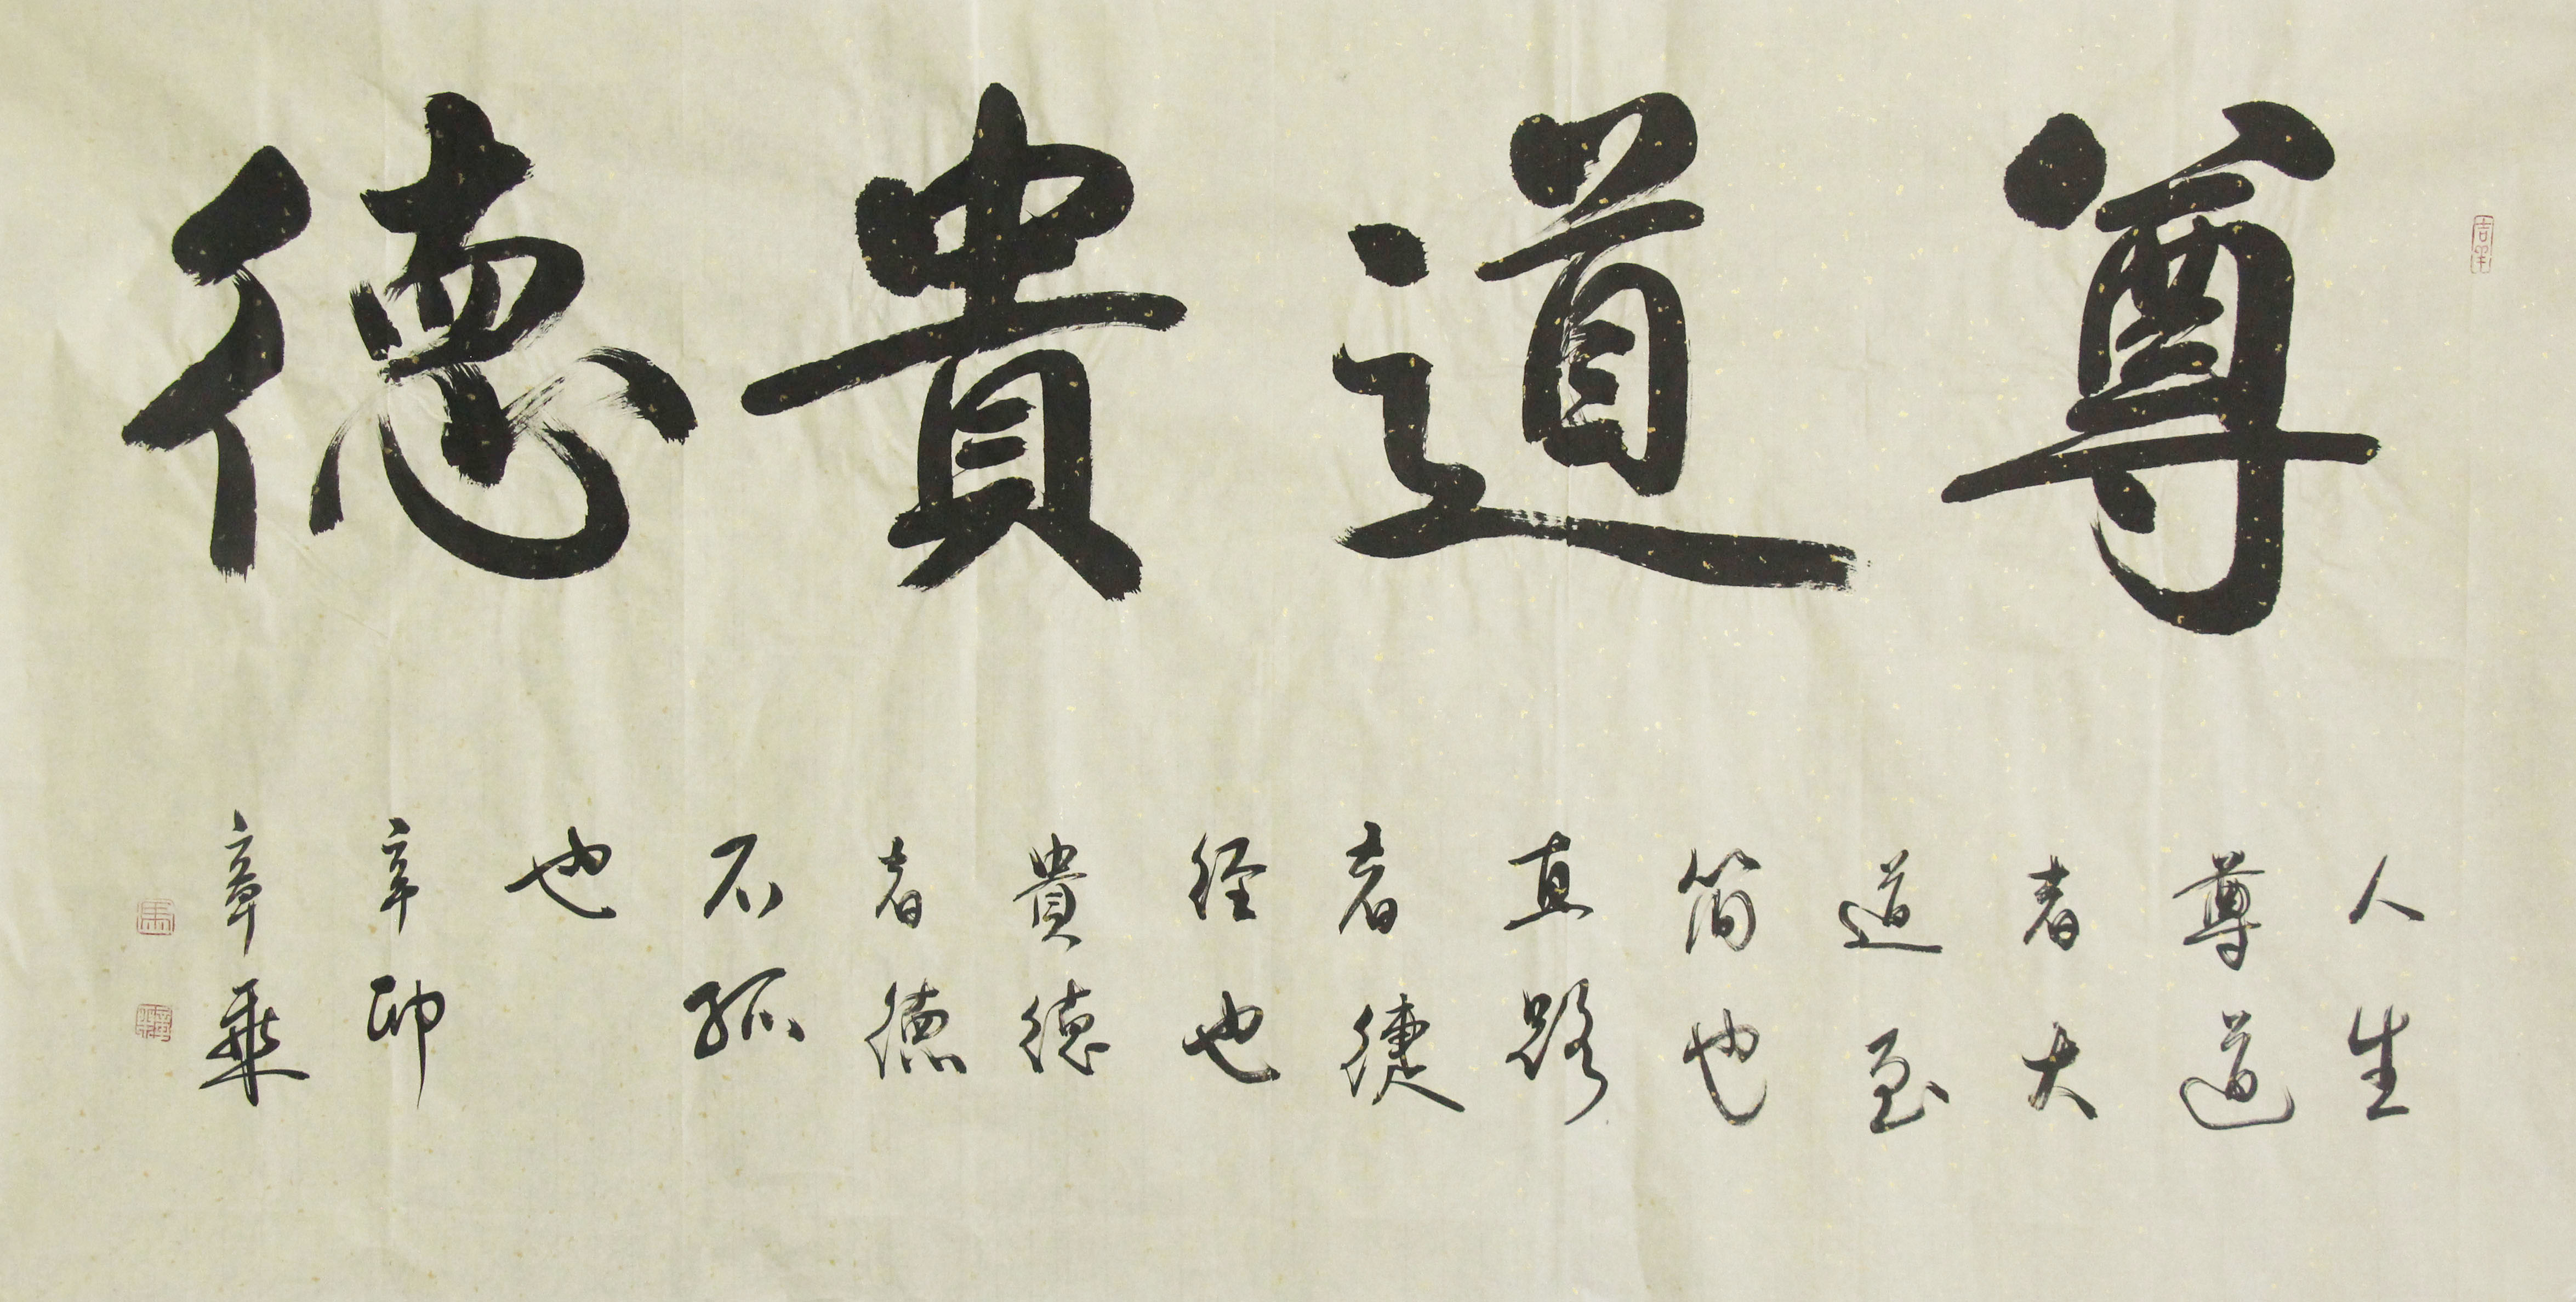 尊道貴德
人生
尊道
者大
道至
简也
直路
者捷
径也
貴德
者德
不孤
也
辛卯
章乘